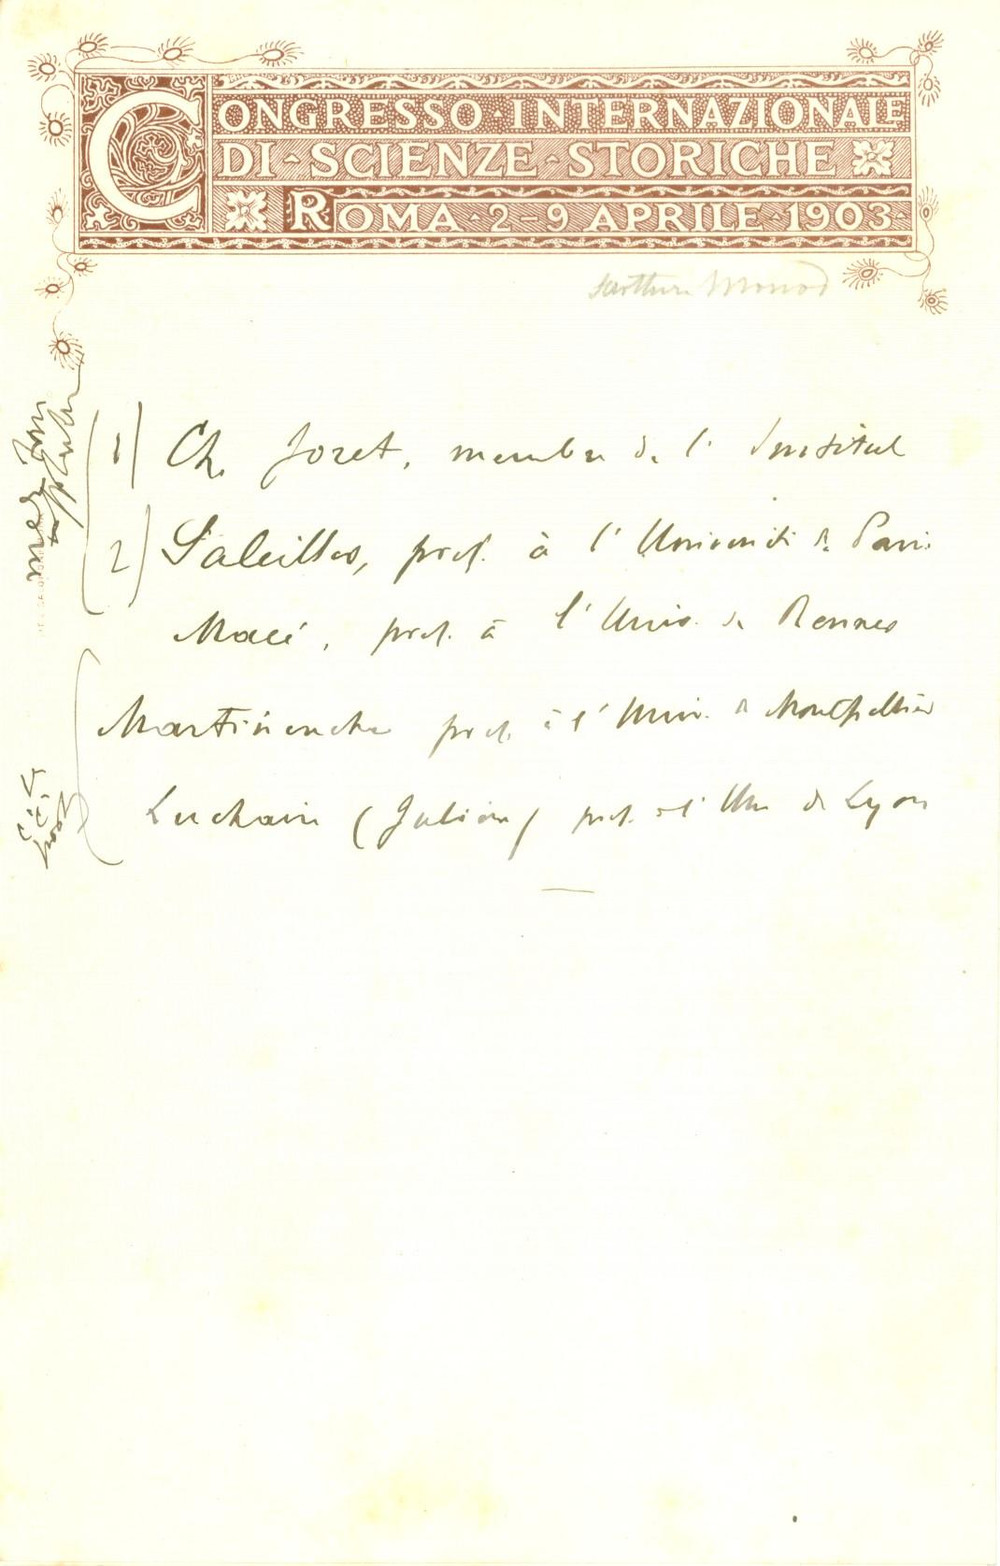 CONGRESSO INTERNAZIONALE
DI SCIENZE STORICHE
ROMA 2-9 APRILE 1903
Monod
1) Ch. Joret, membre de l'Institut
2) Saleilles, prof. à l'Université de Paris
Macé, prof. à l'Univ. de Rennes
Martinenche prof. à l'Univ. de Montpellier
Luchaire (Julien) prof. à l'Un de Lyon